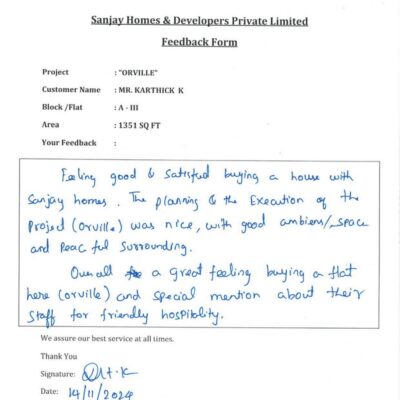 Sanjay Homes & Developers Private Limited
Feedback Form
Project : "ORVILLE"
Customer Name : MR. KARTHICK K
Block /Flat : A - III
Area : 1351 SQ FT
Your Feedback :
Feeling good & satisfied buying a house with
Sanjay homes. The planning & the Execution of the
Project (orville) was nice, with good ambiens/space
and Peaceful surrounding.
Overall a great feeling buying a flat
here (orville) and special mention about their
staff for friendly hospitality.
We assure our best service at all times.
Thank You
Signature:
Date: 14/11/2024